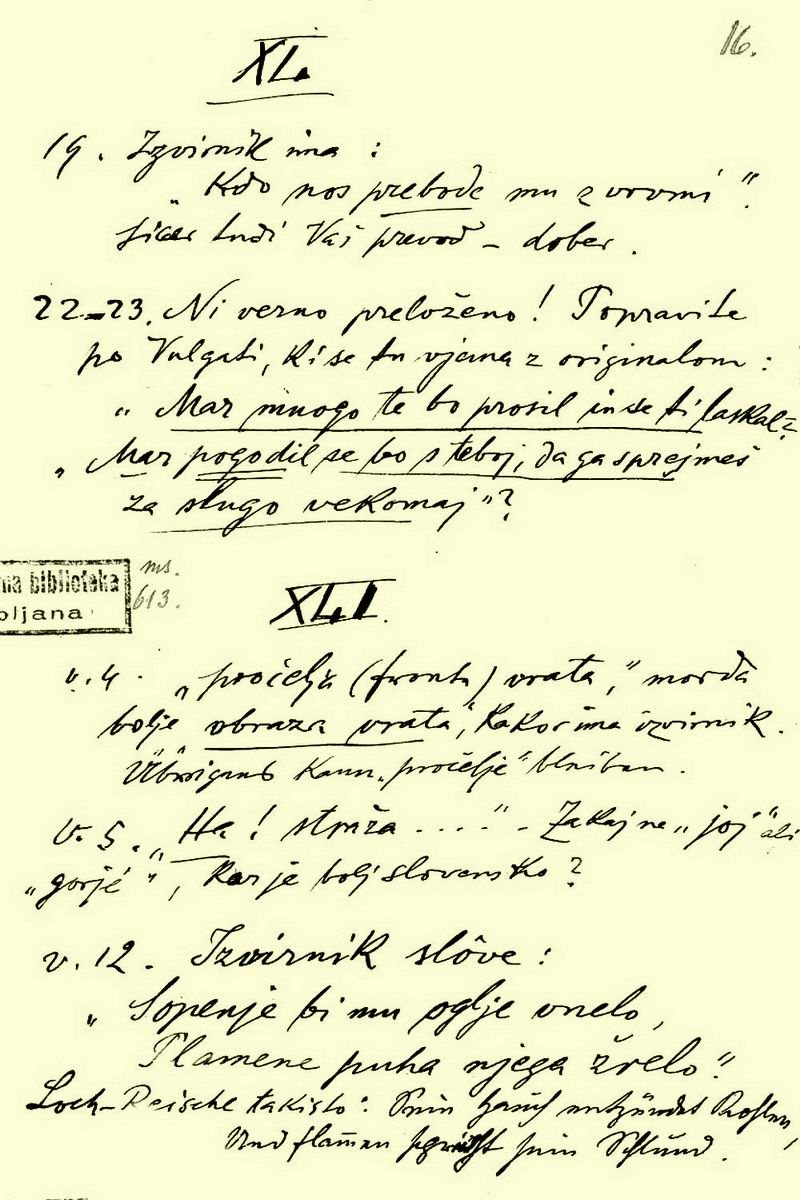 16.
XL.
19. Izvirnik ima :
„Kdo nos prebode mu z vrvmi".
Sicer tudi Vaš prevod – dober.
22–23. Ni verno preloženo! Popravite
po Vulgati, ki se tu vjema z originalom :
„Mar mnogo te bo prosil in se ti laskal?
„Mar pogodil se bo s teboj, da ga sprejmeš
za slugo vekomaj"?
na biblioteka
ljana
ms.
613.
XLI.
v. 4. „pročelja (fronta) vrata," morda
bolje „obraza vrata", kakor ima izvirnik.
Übrigens kann „pročelje" bleiben.
v. 5. „Ha! straža ...." - Zakaj ne „joj" ali
„gorje", kar je bolj slovensko?
v. 12. Izvirnik slôve :
„Sopenje bi mu oglje vnelo,
Plamene puha njega žrelo".
Loch-Reischl takisto: Sein Hauch entzündet Kohlen,
Und flammen sein Schlund.